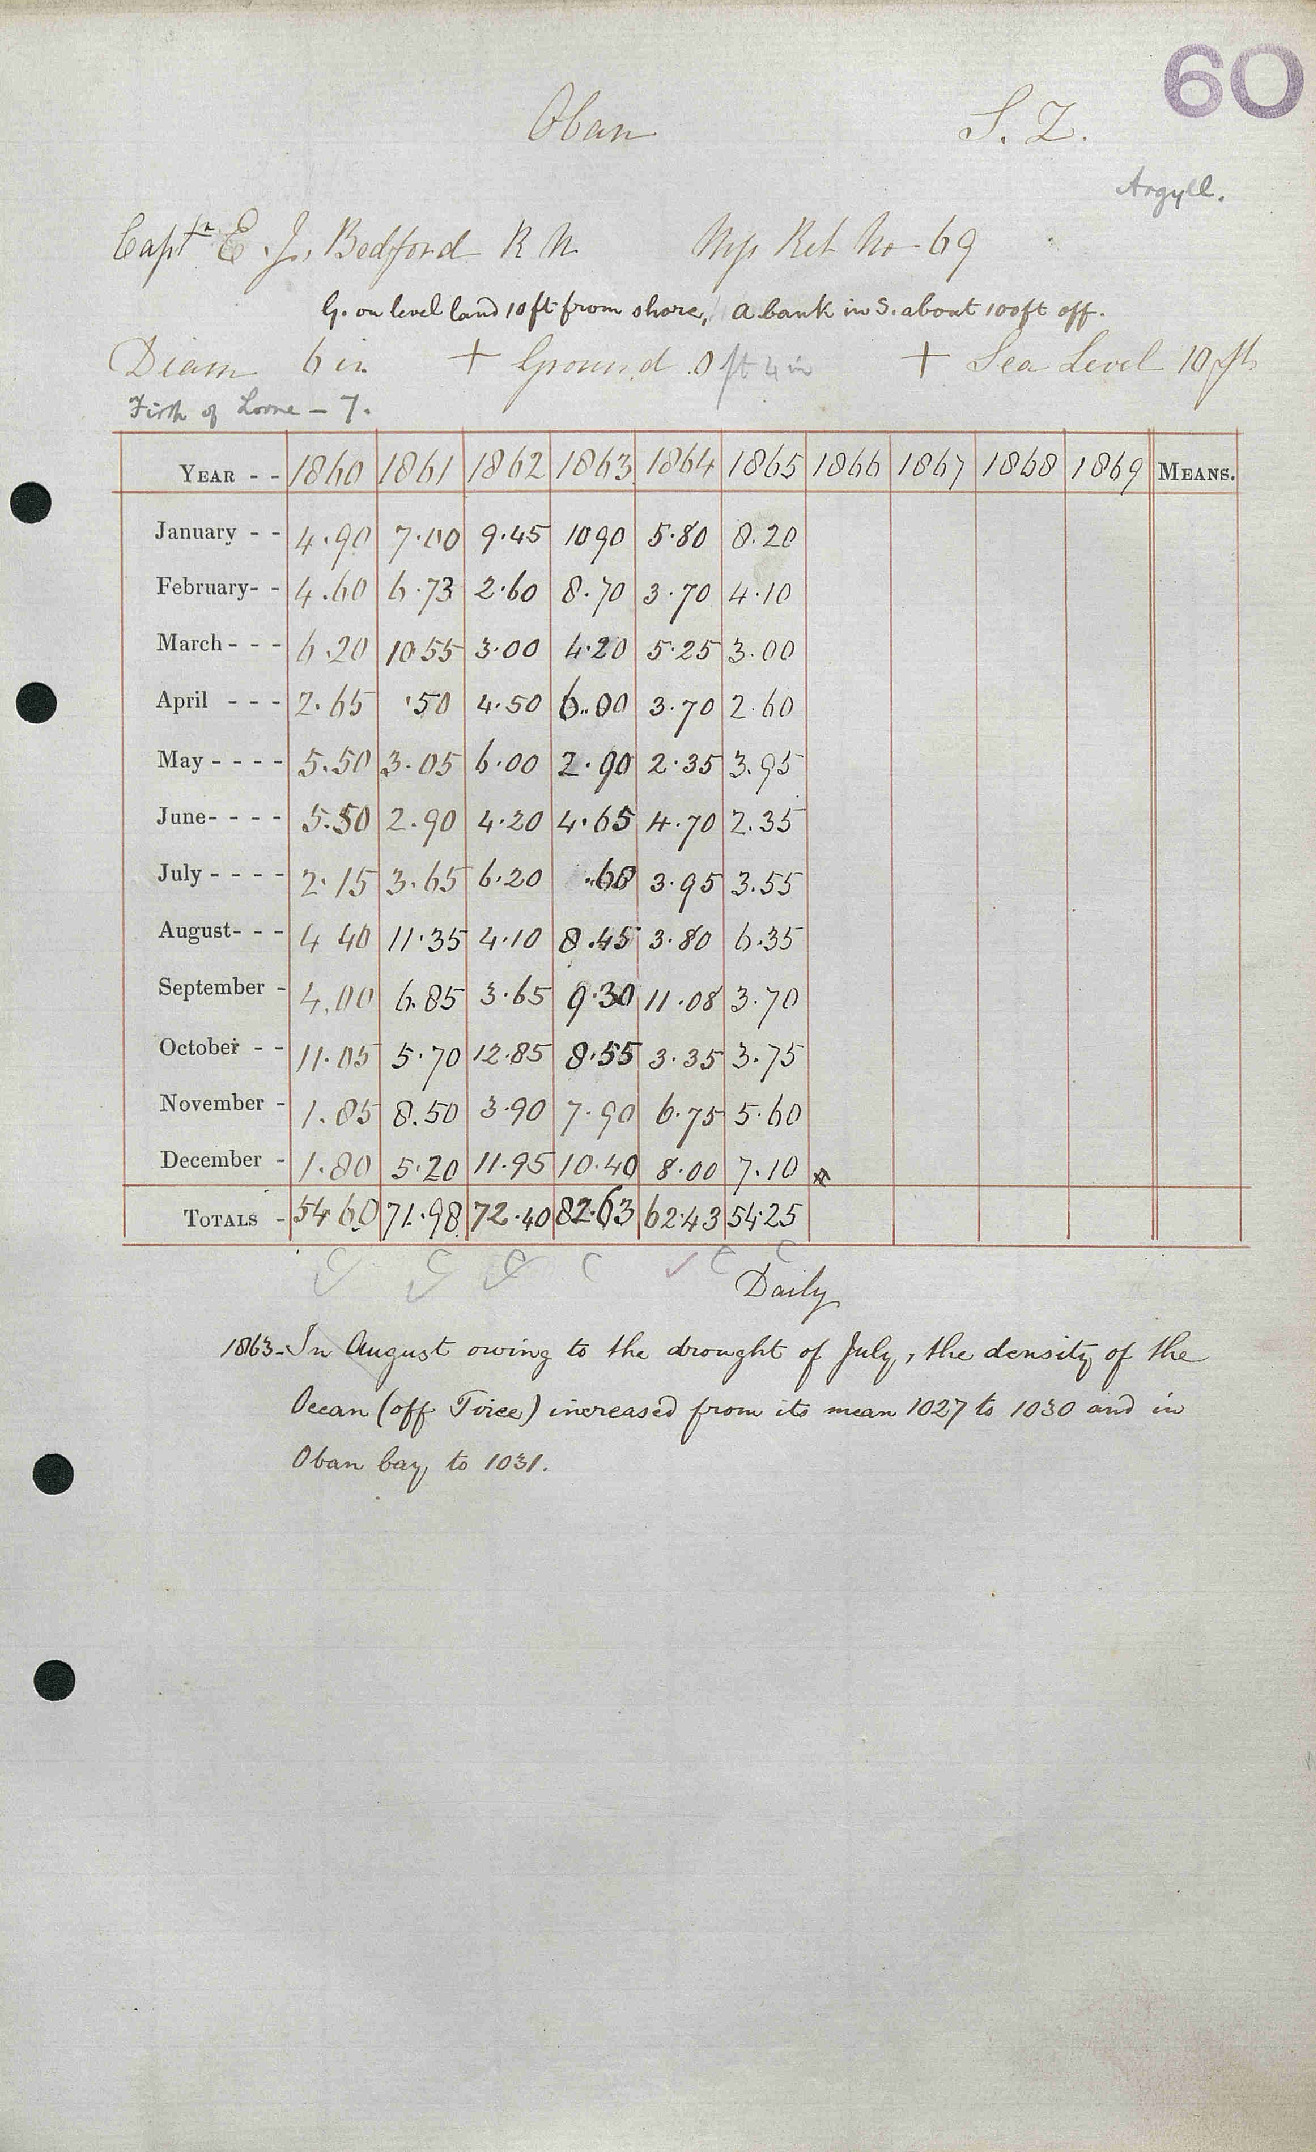 60
Oban S. Z.
Argyll.
Captn E. J. Bedford R N Mys Ret No 69
G. on level land 10 ft from shore, a bank in S. about 100ft off.
Diam 6 in + Ground 0 ft 4 in + Sea Level 10 ft
Firth of Lorne - 7.
YEAR - - 1860 1861 1862 1863 1864 1865 1866 1867 1868 1869 MEANS.
January - - 4.90 7.00 9.45 10 90 5.80 8.20
February- - 4.60 6.73 2.60 8.70 3.70 4.10
March - - - 6.20 10 55 3.00 4.20 5.25 3.00
April - - - 2.65 .50 4.50 6.00 3.70 2.60
May - - - - 5.50 3.05 6.00 2.90 2.35 3.95
June- - - - 5.50 2.90 4.20 4.65 4.70 2.35
July - - - - 2.15 3.65 6.20 .68 3.95 3.55
August- - - 4 40 11.35 4.10 8.45 3.80 6.35
September - 4.00 6.85 3.65 9.30 11.08 3.70
October - - 11.05 5.70 12.85 8.55 3.35 3.75
November - 1.85 8.50 3.90 7.90 6.75 5.60
December - 1.80 5.20 11.95 10.40 8.00 7.10
TOTALS - 54 60 71.98 72.40 82.63 62.43 54.25
C C C C C C
Daily
1863- In August owing to the drought of July, the density of the
Ocean (off Tiree) increased from its mean 1027 to 1030 and in
Oban bay to 1031.